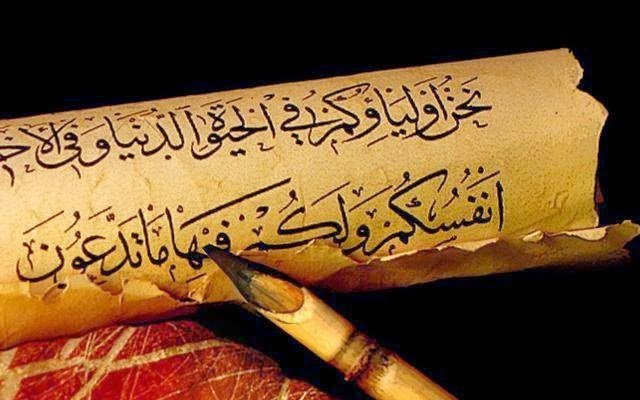 نَحْنُ أَوْلِيَاؤُكُمْ فِي الْحَيَوٰةِ الدُّنْيَا وَفِي الْآخ
أَنْفُسُكُمْ وَلَكُمْ فِيهَا مَا تَدَّعُونَ